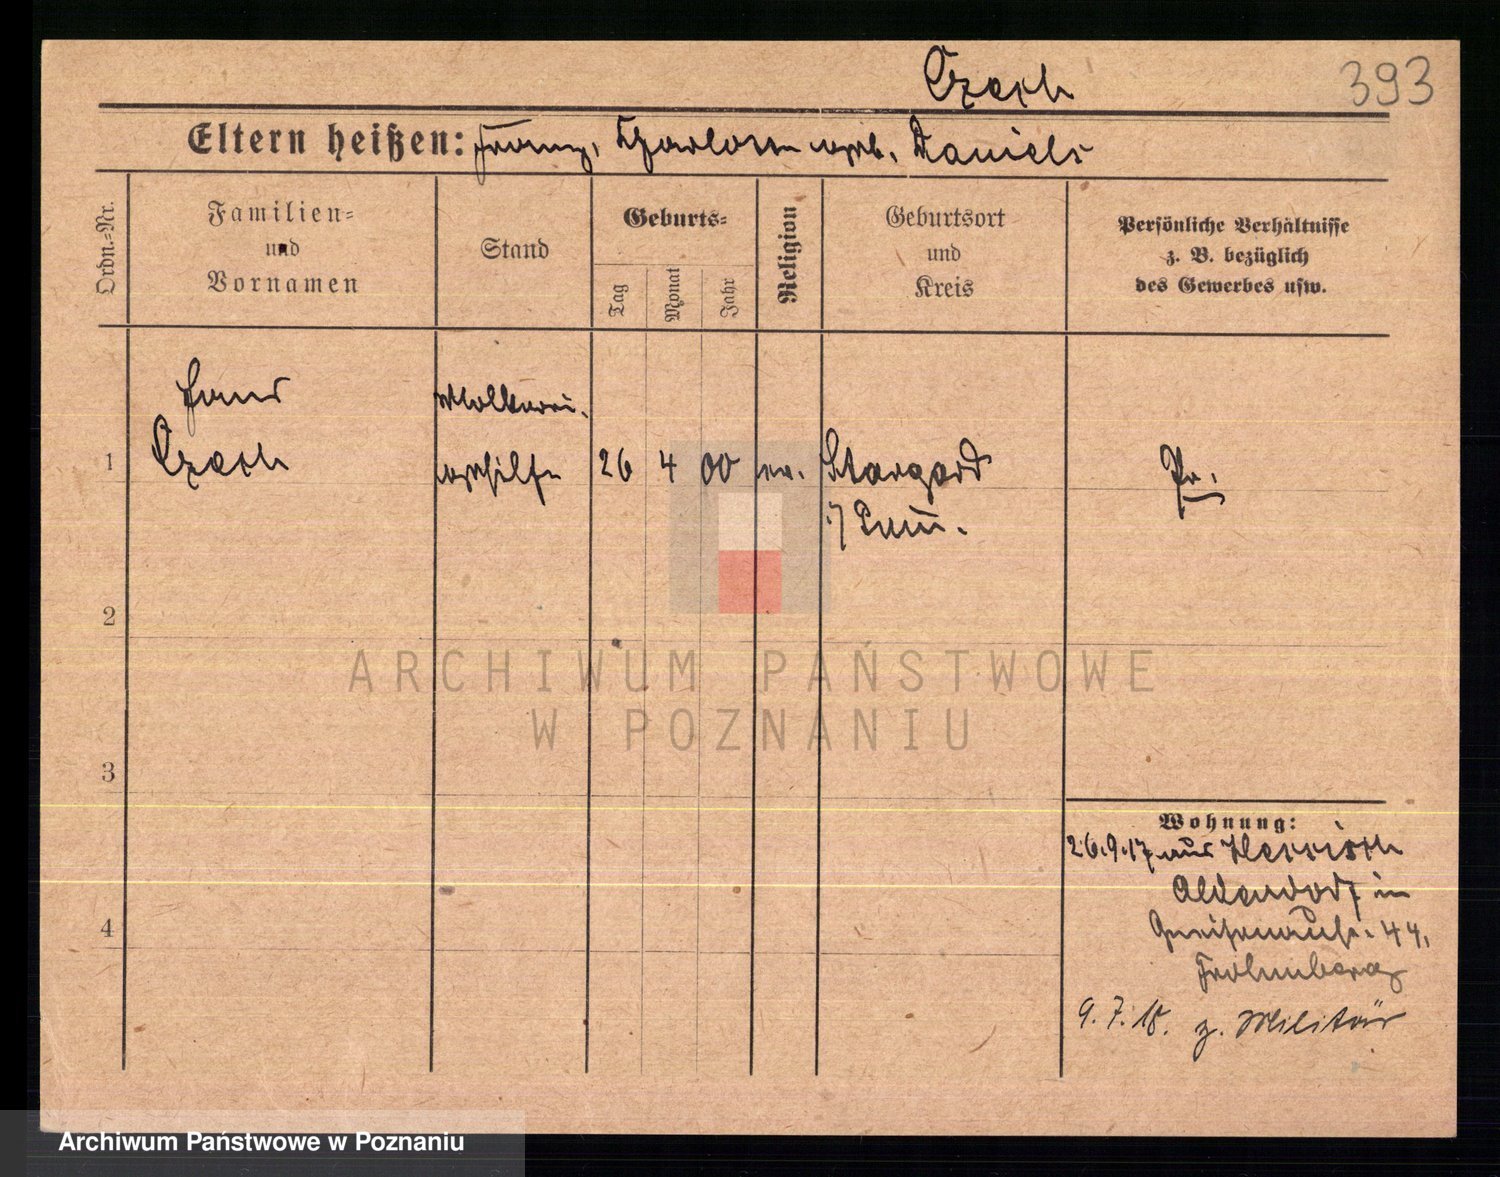 Czech
393
Eltern heißen: Franz, Charlotte geb. Daniels
Ordn.-Nr.
Familien-
und
Vornamen
Stand
Geburts-
Tag
Monat
Jahr
Religion
Geburtsort
und
Kreis
Persönliche Verhältnisse
z. B. bezüglich
des Gewerbes usw.
Hans
Molkerei-
1 Czech gehilfe 26 4 00 ev. Stargard Pr.
i/ Pom.
2
ARCHIWUM PAŃSTWOWE
W POZNANIU
3
Wohnung:
26.9.17 aus
Altendorf in
Gneisenaustr. 44,
9.7.18. z. Militär
4
Archiwum Państwowe w Poznaniu